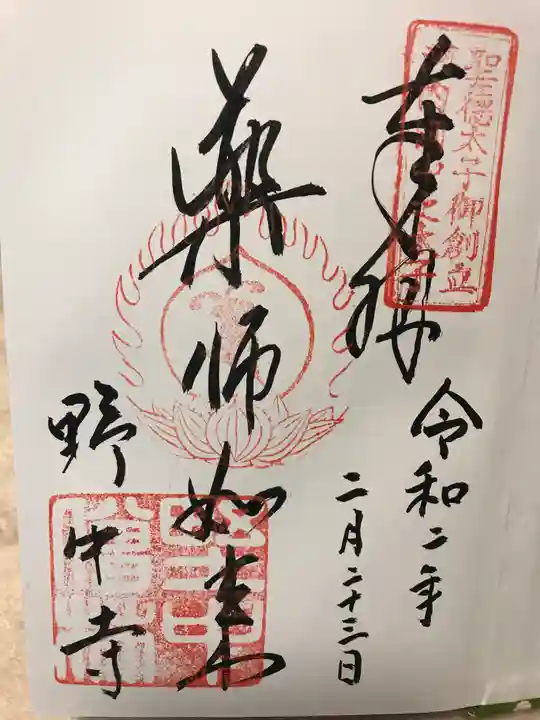 奉拝
聖徳太子御創立
令和二年
二月二十三日
薬師如来
野中寺